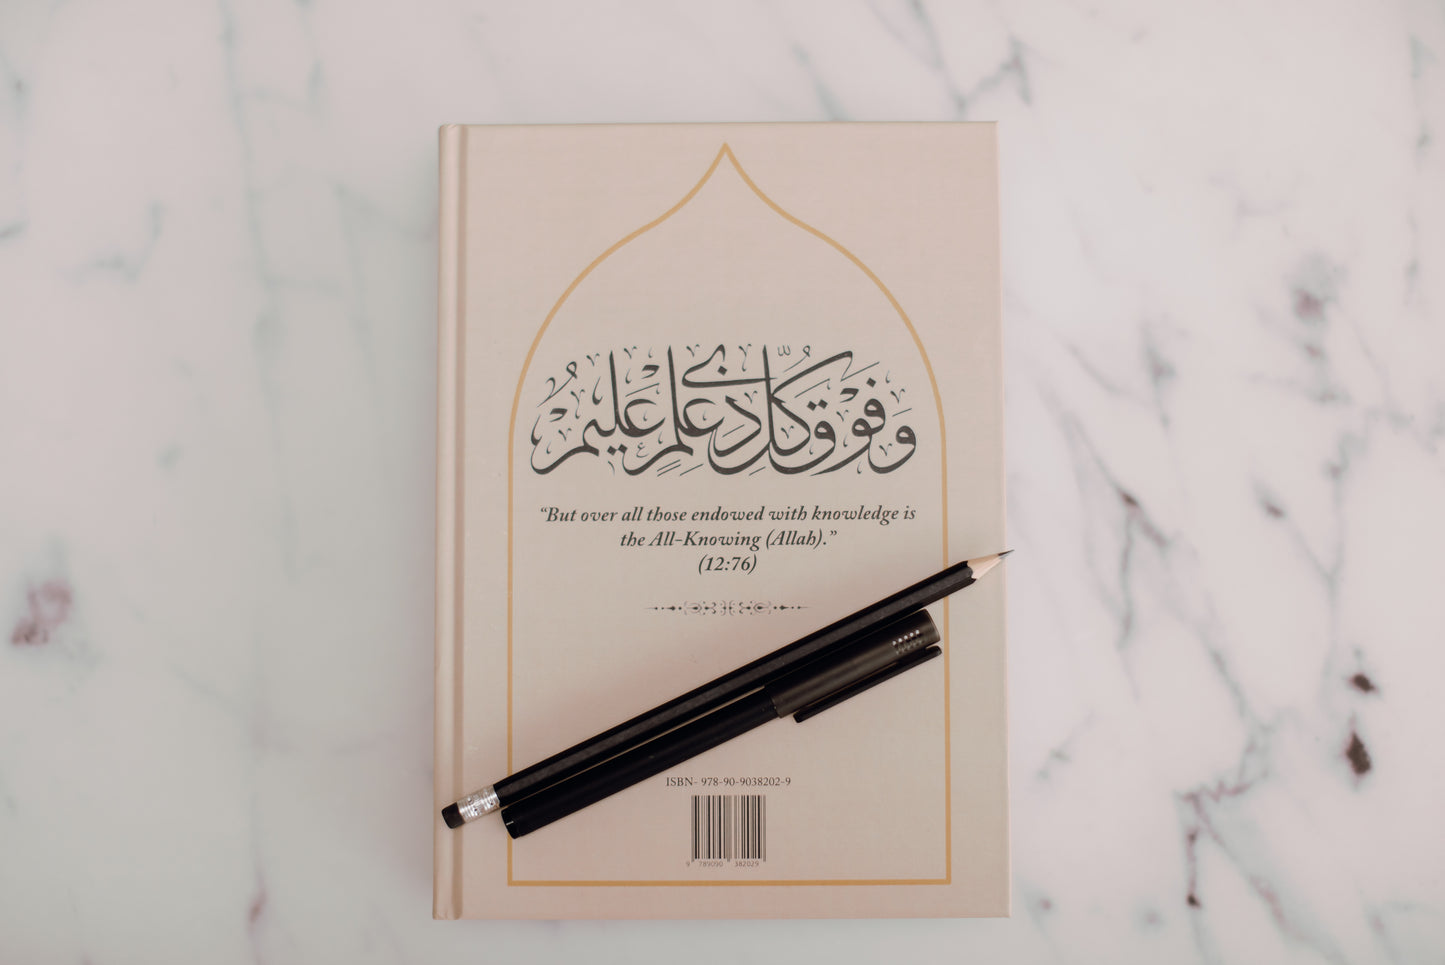 وَفَوْقَ كُلِّ ذِي عِلْمٍ عَلِيمٌ
“But over all those endowed with knowledge is
the All-Knowing (Allah).”
(12:76)
ISBN- 978-90-9038202-9
9 789090 382029